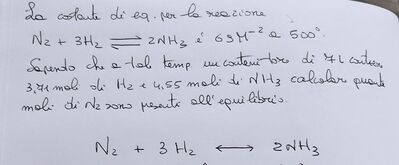 La costante di eq. per la reazione
N₂ + 3H₂ ⇌ 2NH₃ é 69M⁻² a 500°.
Sapendo che a tal temp. un contenitore di 7L contiene
3,71 moli di H₂ e 4,55 moli di NH₃ calcolar quante
moli di N₂ sono presenti all'equilibrio.
N₂ + 3H₂ ⟷ 2NH₃